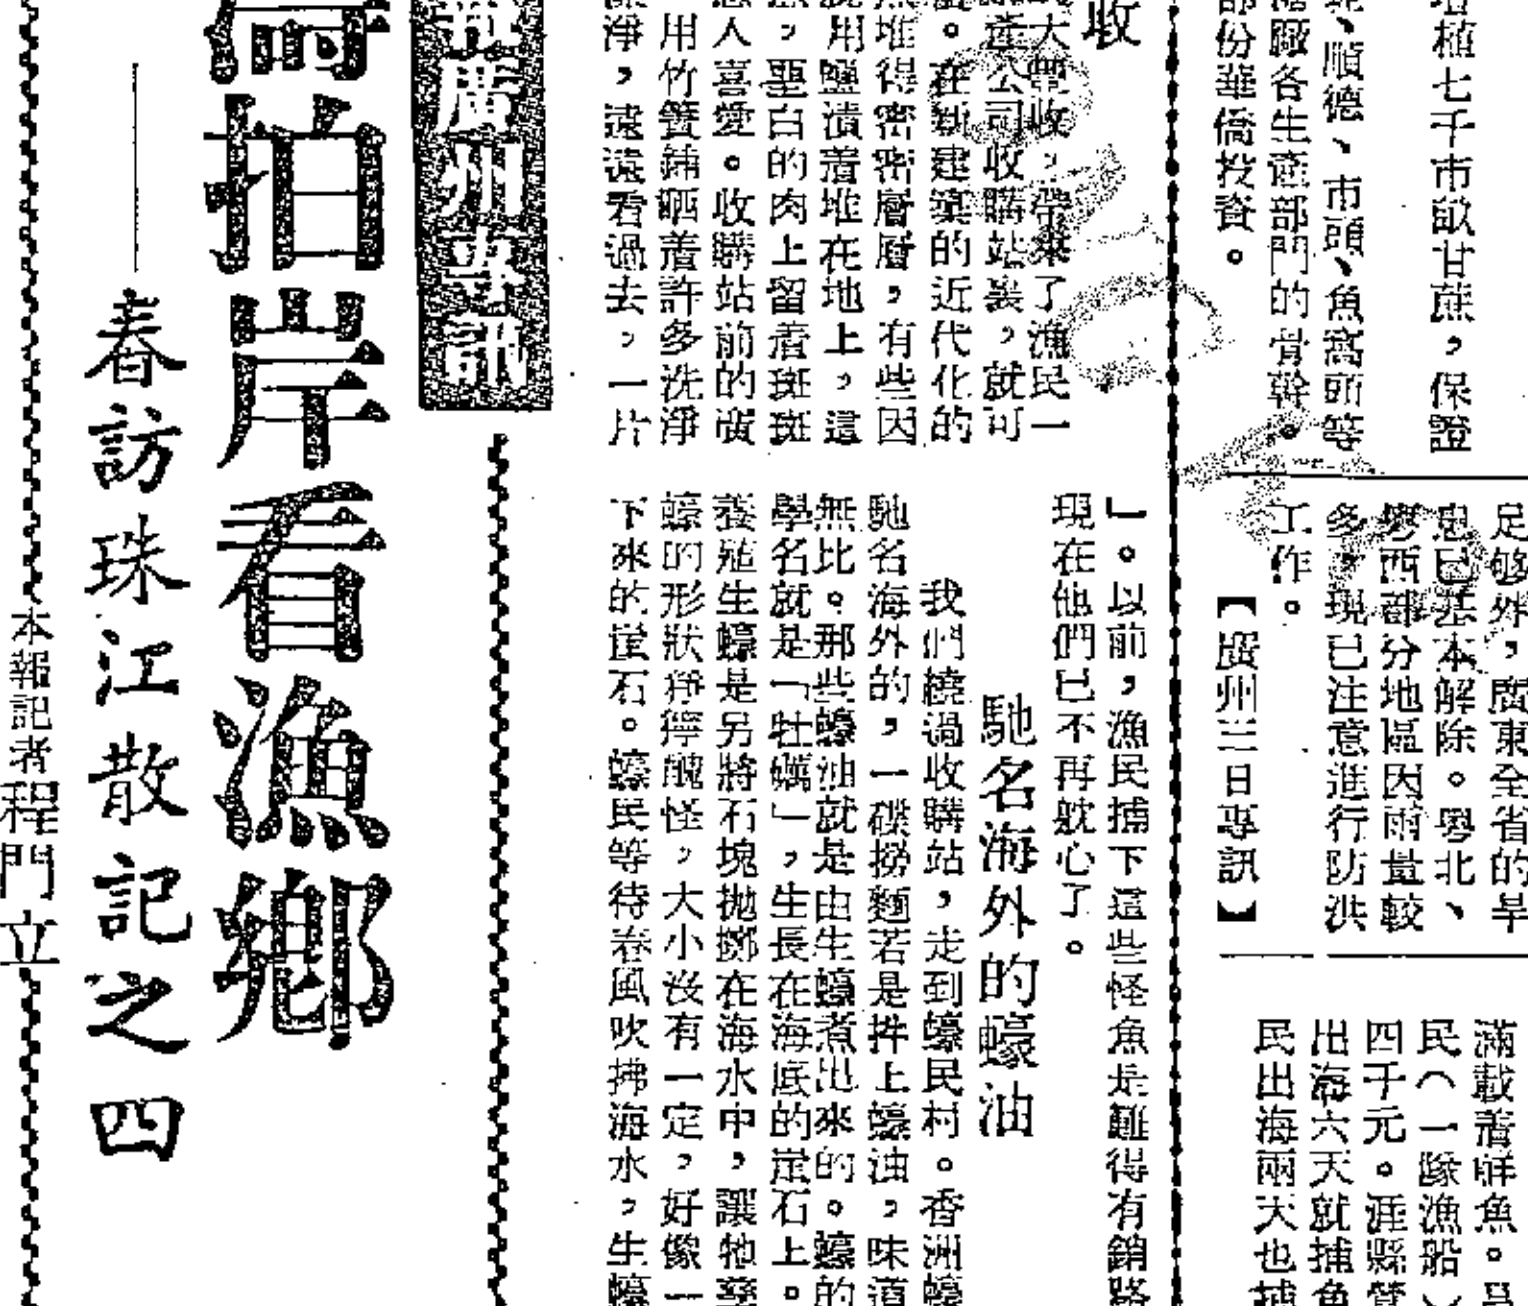 植七千市畝甘蔗，保證
、順德、市頭、魚窩頭等
各生產部門的骨幹。
部份華僑投資。
足够外，廣東全省的旱
息已基本解除。粵北、
粵西部分地區因雨量較
多，現已注意進行防洪
工作。
【廣州三日專訊】
滿載着鮮魚。
民（一隊漁船）
四千元。涯縣
出海六天就捕魚
民出海兩天也捕
收
大豐收，帶來了漁民一
產公司收購站裏，就可
。在新建築的近代化的
堆得密密層層，有些因
用鹽漬着堆在地上，這
，堊白的肉上留着斑斑
人喜愛。收購站前的廣
用竹簀鋪晒着許多洗淨
淨，遠遠看過去，一片
」。以前，漁民捕下這些怪魚是難得有銷路
現在他們已不再躭心了。
馳名海外的蠔油
我們繞過收購站，走到蠔民村。香洲蠔
馳名海外的，一碟撈麵若是拌上蠔油，味道
無比。那些蠔油就是由生蠔煮出來的。蠔的
學名就是「牡蠣」，生長在海底的崖石上。
養殖生蠔是另將石塊拋擲在海水中，讓牠孳
蠔的形狀猙獰醜怪，大小沒有一定，好像一
下來的崖石。蠔民等待春風吹拂海水，生蠔
廣州專訊
拍岸看漁鄉
——春訪珠江散記之四
本報記者程門立